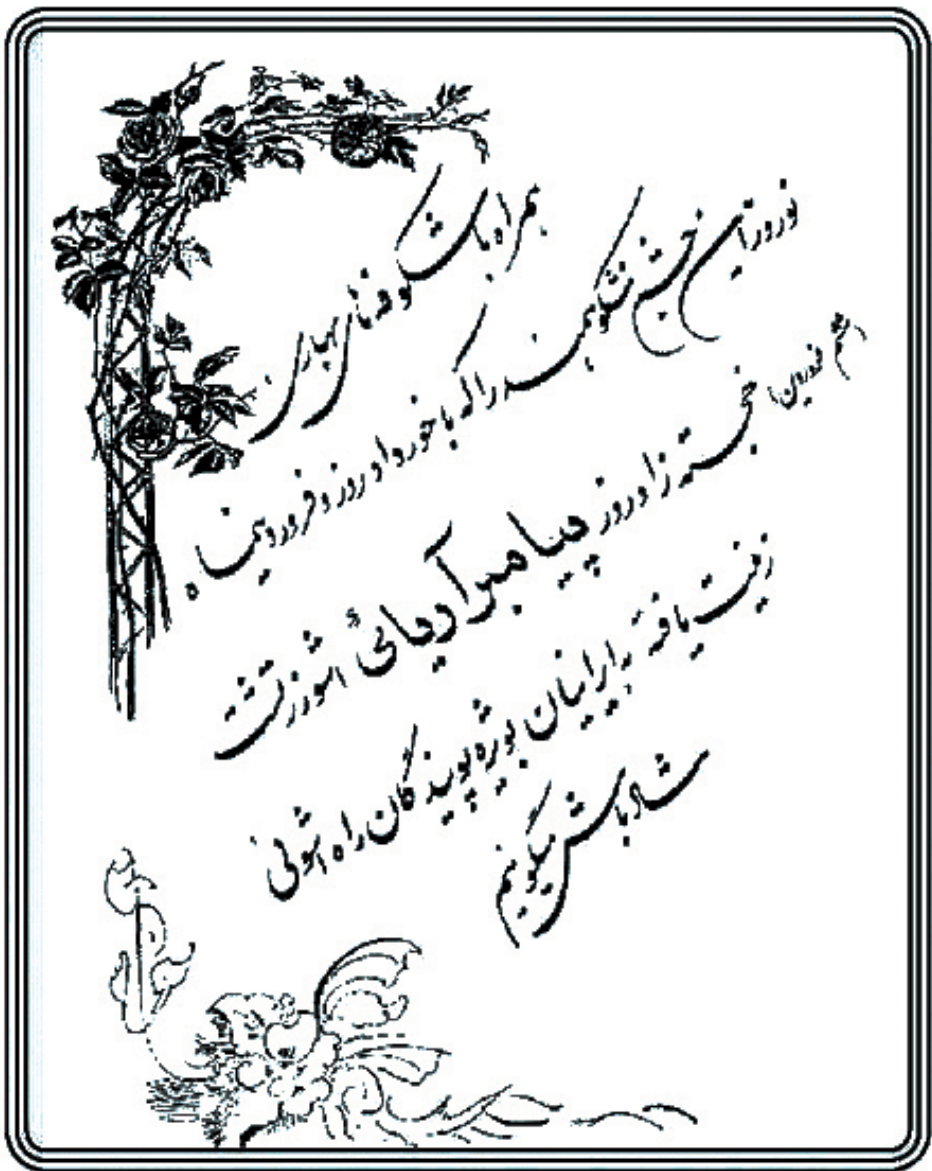 همراه با شکوفه‌های بهاری
نوروز این جشن شکوهمند را که با خورداد روز و فروردینماه
(ششم فروردین) خجسته زادروز پیامبر آریائی اشوزرتشت
زینت یافته برایرانیان بویژه پویندگان راه اشوئی
شادباش میگوئیم